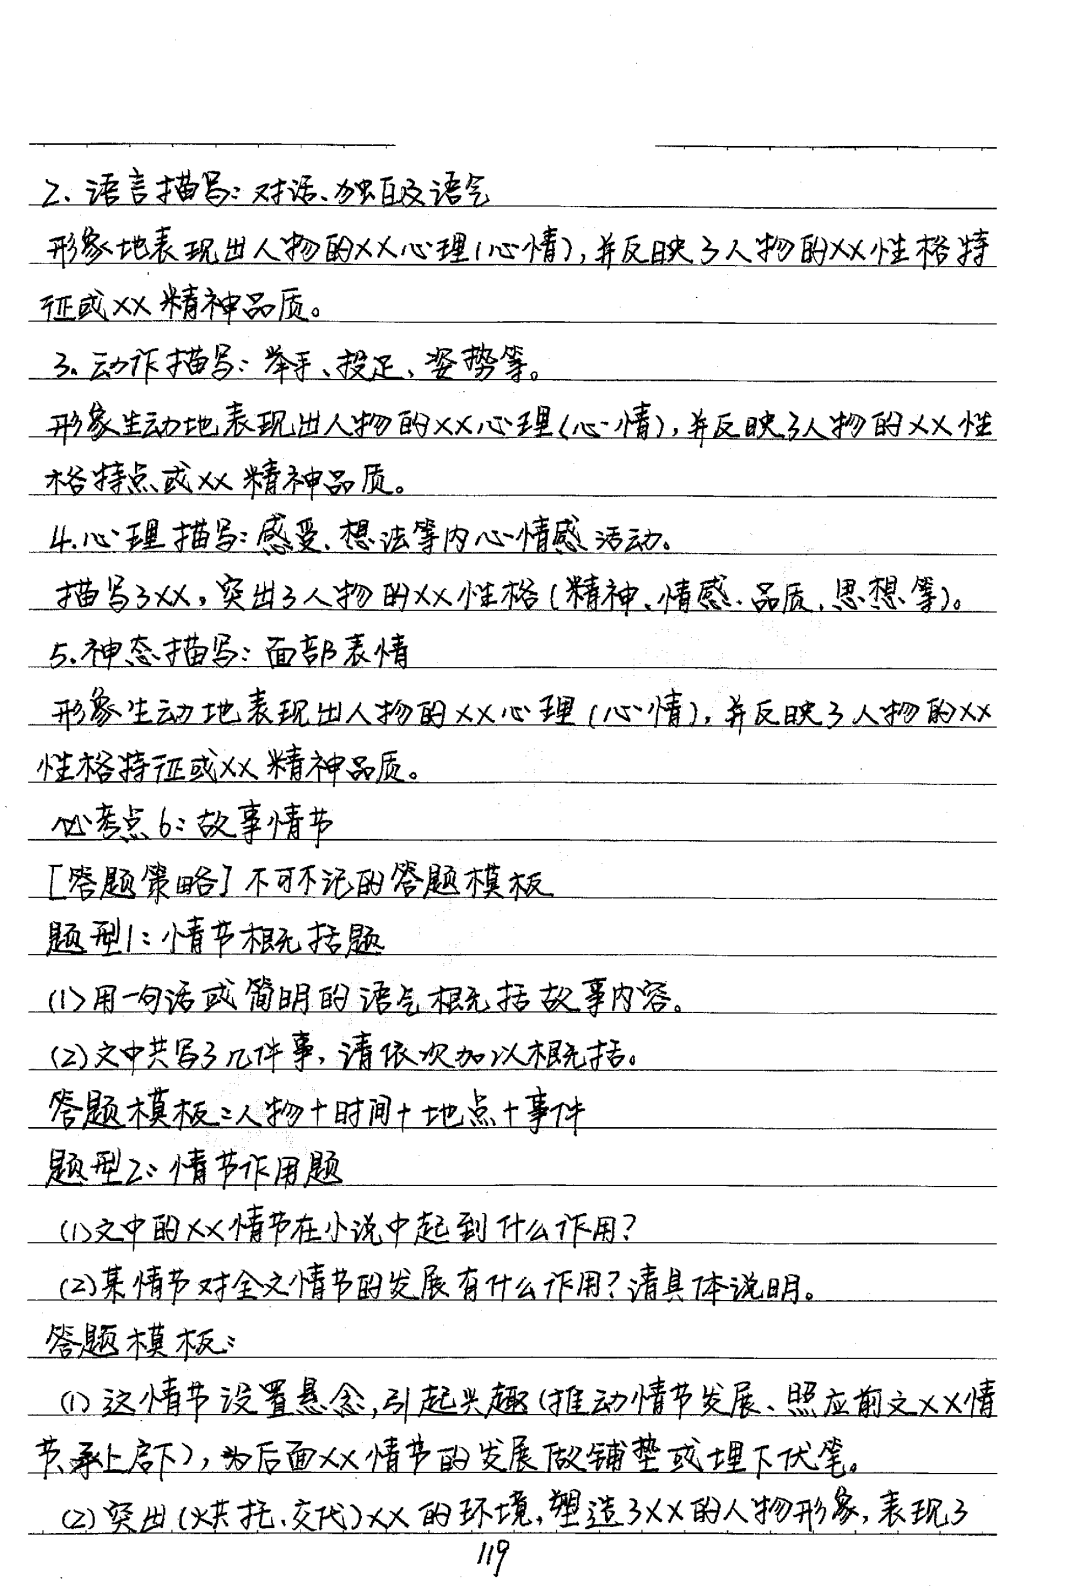 2、语言描写：对话、独白及语气
形象地表现出人物的XX心理（心情），并反映了人物的XX性格特
征或XX精神品质。
3、动作描写：举手、投足、姿势等。
形象生动地表现出人物的XX心理（心情），并反映了人物的XX性
格特点或XX精神品质。
4.心理描写：感受、想法等内心情感活动。
描写了XX，突出了人物的XX性格（精神、情感、品质、思想等）。
5.神态描写：面部表情
形象生动地表现出人物的XX心理（心情），并反映了人物的XX
性格特征或XX精神品质。
必考点6：故事情节
[答题策略]不可不记的答题模板
题型1：情节概括题
(1)用一句话或简明的语气概括故事内容。
(2)文中共写了几件事，请依次加以概括。
答题模板：人物+时间+地点+事件
题型2：情节作用题
(1)文中的XX情节在小说中起到什么作用？
(2)某情节对全文情节的发展有什么作用？请具体说明。
答题模板：
(1)这情节设置悬念，引起兴趣（推动情节发展、照应前文XX情
节、承上启下），为后面XX情节的发展做铺垫或埋下伏笔。
(2)突出（烘托、交代）XX的环境，塑造了XX的人物形象，表现了
119